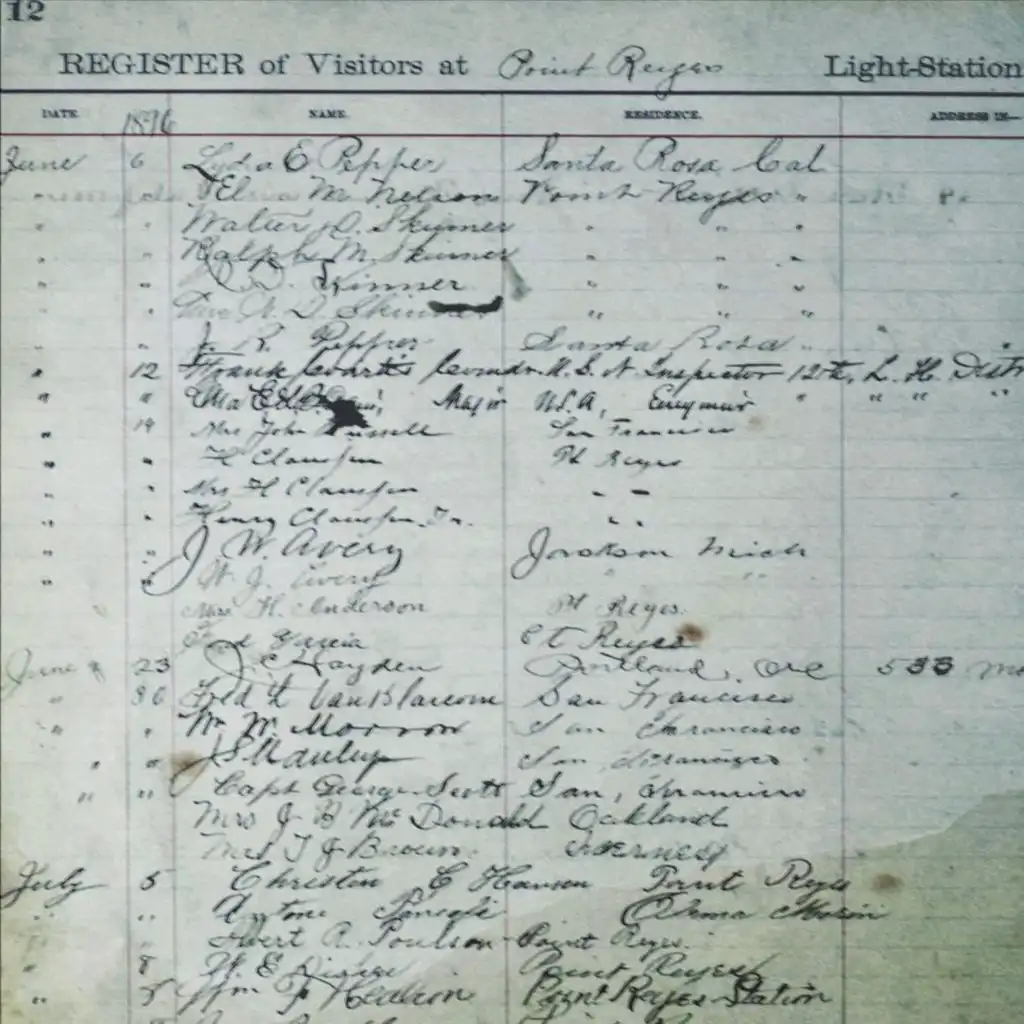 12
REGISTER of Visitors at Point Reyes Light-Station
DATE. 1896 NAME. RESIDENCE. ADDRESS IN—
June 6 Lydia E Pepper Santa Rosa Cal
" " M. Nelson Point Reyes "
" " Walter D. Skinner " "
" " Ralph M. Skinner " " "
" " D. Skinner " " "
" " D. Skinner " "
" " J. R. Pepper Santa Rosa "
" 12 Frank Courtis Comdr. U.S.N Inspector 12th. L. H. Distr
" " Major U.S.A, " " " "
" 19 Mrs John Russell San Francisco
" " H Claussen Pt Reyes
" " Mrs H Claussen " "
" " Henry Claussen Jr. " "
" " J. W. Avery Jackson Mich
" " W. J. Avery " "
H. Anderson Pt Reyes.
Garcia Pt Reyes
June 23 J. C. Hayden Portland, Ore 533
" 30 Fred L Van Blarcom San Francisco
" " W. W. Morrow San Francisco
" " San Francisco
" " Capt George Scott San, Francisco
Mrs J B McDonald Oakland
Mrs T J Brown Inverness
July 5 Christen C Hansen Point Reyes
" " Antone
" R. Poulson Point Reyes.
" 8 W. E Point Reyes
" 8 Wm Point Reyes Station